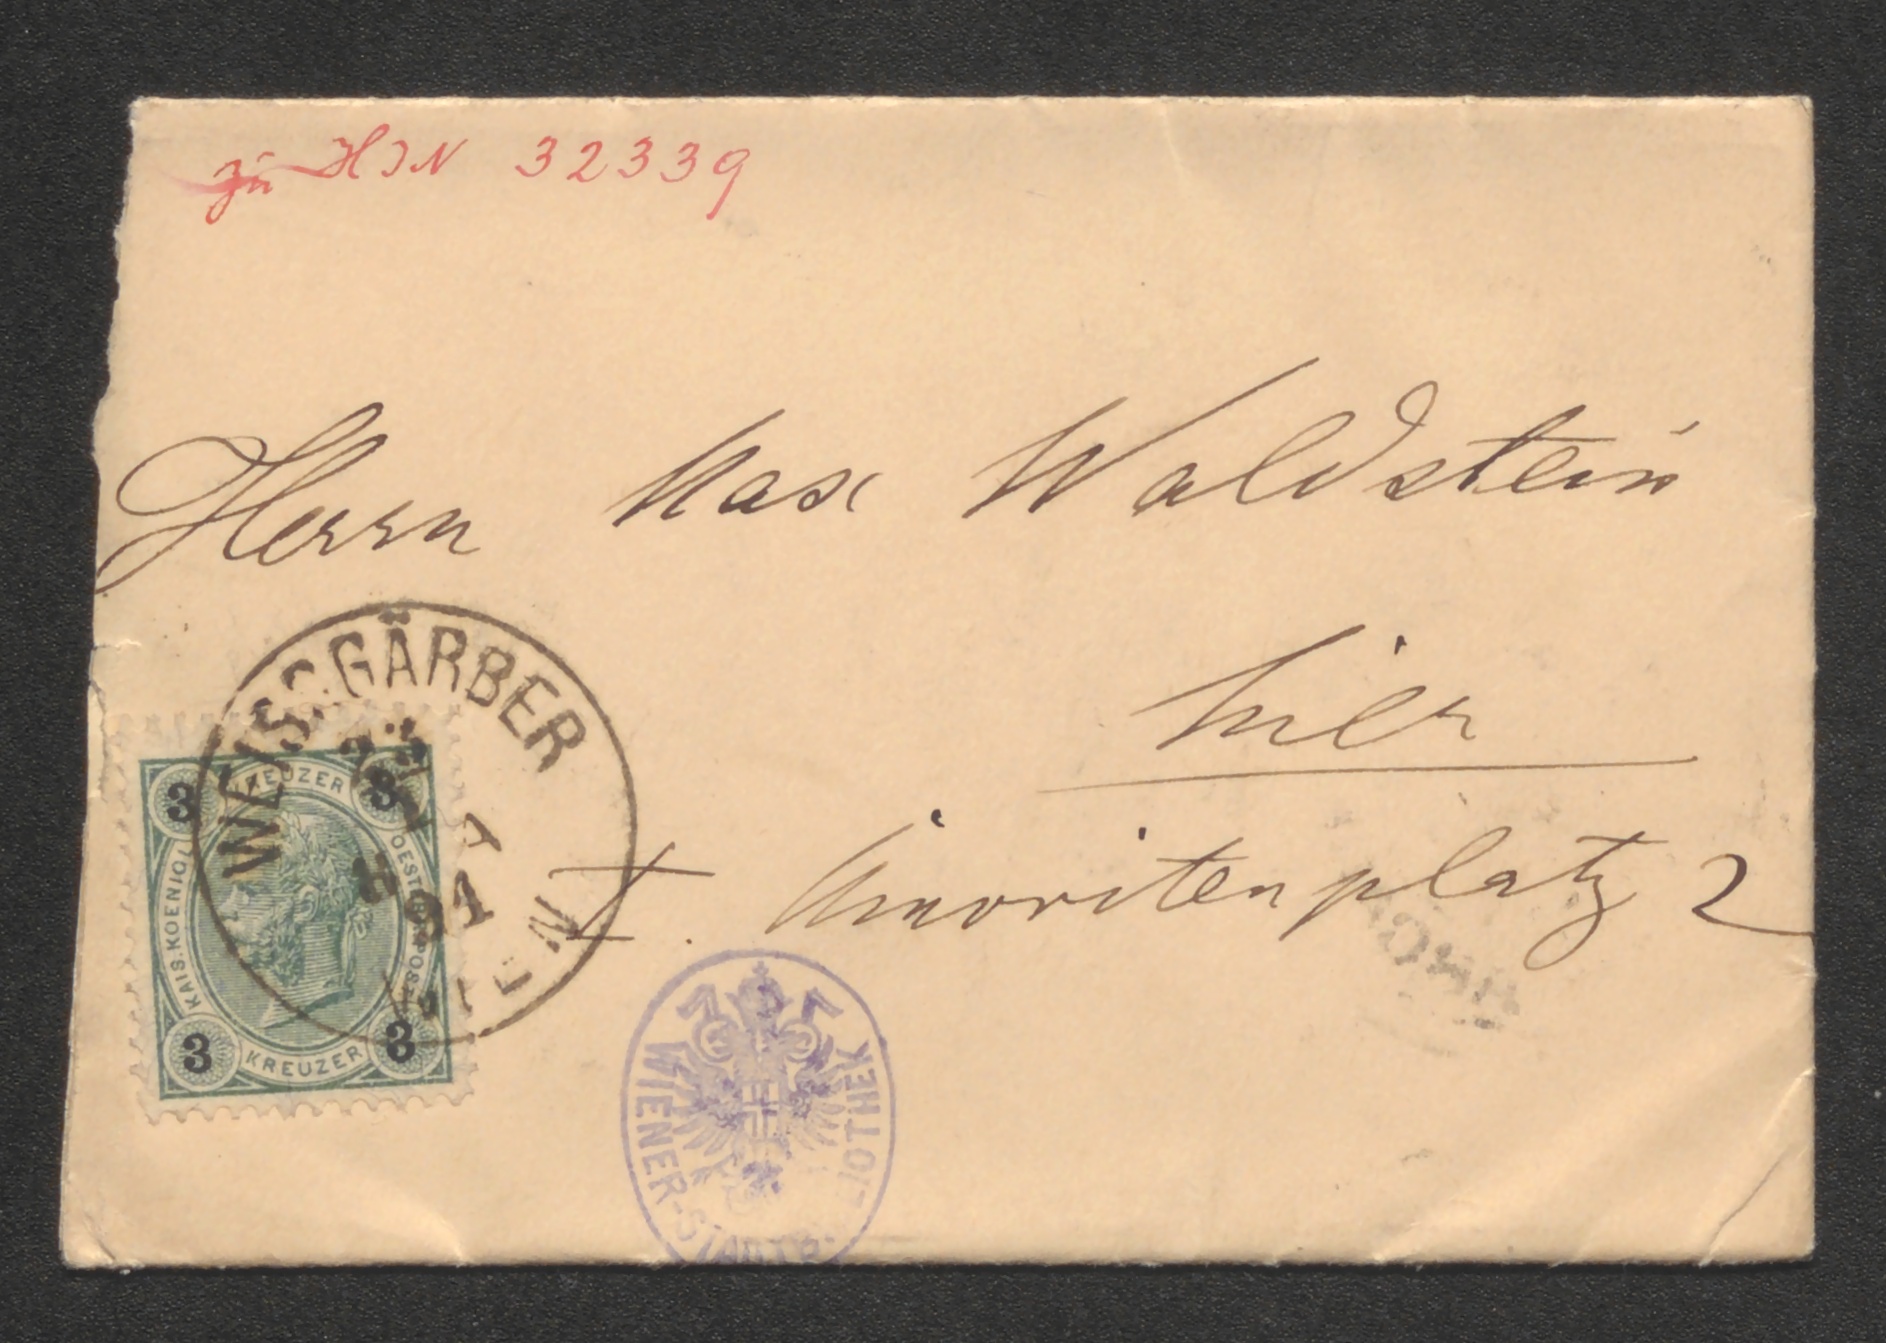 zu HIN 32339
Herrn Max Waldstein
hier
I. Minoritenplatz 2
WEISSGÄRBER
91
WIEN
3 KREUZER 3
KAIS. KOENIGL.
3 KREUZER 3
WIENER-STADTBIBLIOTHEK